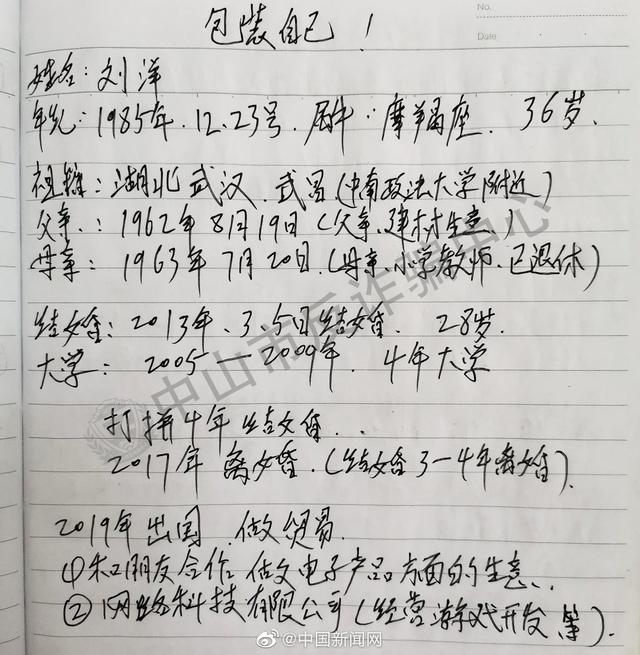 No.
Date
包装自己！
姓名：刘洋
年纪：1985年.12.23号.属牛.摩羯座.36岁.
祖籍：湖北武汉.武昌(中南政法大学附近)
父亲.：1962年8月19日(父亲.建材生意.)
母亲：1963年7月20日.(母亲.小学教师.已退休)
结婚：2013年.3.5日结婚.28岁.
大学：2005—2009年.4年大学
打拼4年结婚..
2017年离婚.(结婚3—4年离婚).
2019年出国.做贸易.
①和朋友合作.做电子产品方面的生意.
②网络科技有限公司(经营游戏开发等).
中山市反诈骗中心
@中国新闻网